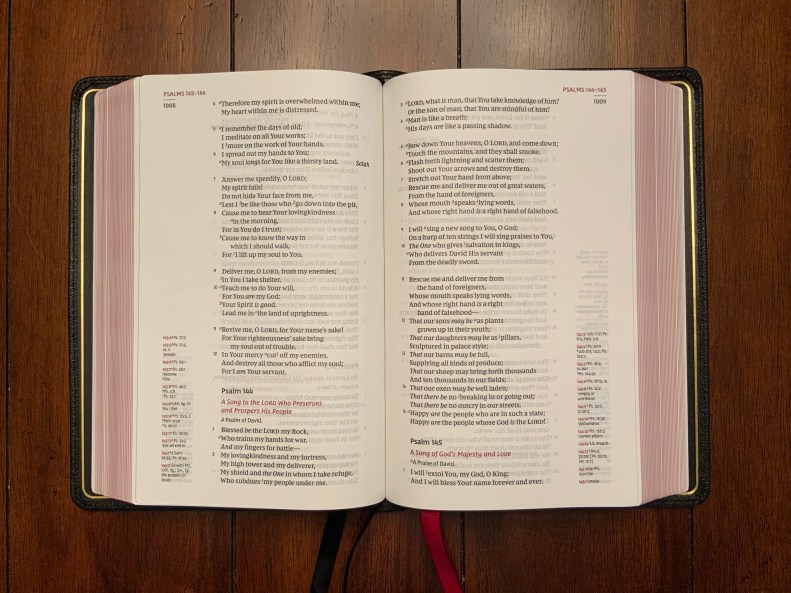 PSALMS 143–144
1008
4 Therefore my spirit is overwhelmed within me;
My heart within me is distressed.
5 I remember the days of old;
I meditate on all Your works;
I muse on the work of Your hands.
6 I spread out my hands to You;
My soul longs for You like a thirsty land. Selah
7 Answer me speedily, O LORD;
My spirit fails!
Do not hide Your face from me,
Lest I be like those who go down into the pit.
8 Cause me to hear Your lovingkindness
in the morning,
For in You do I trust;
Cause me to know the way in
which I should walk,
For I lift up my soul to You.
9 Deliver me, O LORD, from my enemies;
In You I take shelter.
10 Teach me to do Your will,
For You are my God;
Your Spirit is good.
Lead me in the land of uprightness.
11 Revive me, O LORD, for Your name's sake!
For Your righteousness' sake bring
my soul out of trouble.
12 In Your mercy cut off my enemies,
And destroy all those who afflict my soul;
For I am Your servant.
Psalm 144
A Song to the LORD Who Preserves
and Prospers His People
A Psalm of David.
1 Blessed be the LORD my Rock,
Who trains my hands for war,
And my fingers for battle—
2 My lovingkindness and my fortress,
My high tower and my deliverer,
My shield and the One in whom I take refuge,
Who subdues my people under me.
PSALMS 144–145
1009
3 LORD, what is man, that You take knowledge of him?
Or the son of man, that You are mindful of him?
4 Man is like a breath;
His days are like a passing shadow.
5 Bow down Your heavens, O LORD, and come down;
Touch the mountains, and they shall smoke.
6 Flash forth lightning and scatter them;
Shoot out Your arrows and destroy them.
7 Stretch out Your hand from above;
Rescue me and deliver me out of great waters,
From the hand of foreigners,
8 Whose mouth speaks lying words,
And whose right hand is a right hand of falsehood.
9 I will sing a new song to You, O God;
On a harp of ten strings I will sing praises to You,
10 The One who gives salvation to kings,
Who delivers David His servant
From the deadly sword.
11 Rescue me and deliver me from
the hand of foreigners,
Whose mouth speaks lying words,
And whose right hand is a right
hand of falsehood—
12 That our sons may be as plants
grown up in their youth;
That our daughters may be as pillars,
Sculptured in palace style;
13 That our barns may be full,
Supplying all kinds of produce;
That our sheep may bring forth thousands
And ten thousands in our fields;
14 That our oxen may be well laden;
That there be no breaking in or going out;
That there be no outcry in our streets.
15 Happy are the people who are in such a state;
Happy are the people whose God is the LORD!
Psalm 145
A Song of God's Majesty and Love
A Praise of David.
1 I will extol You, my God, O King;
And I will bless Your name forever and ever.